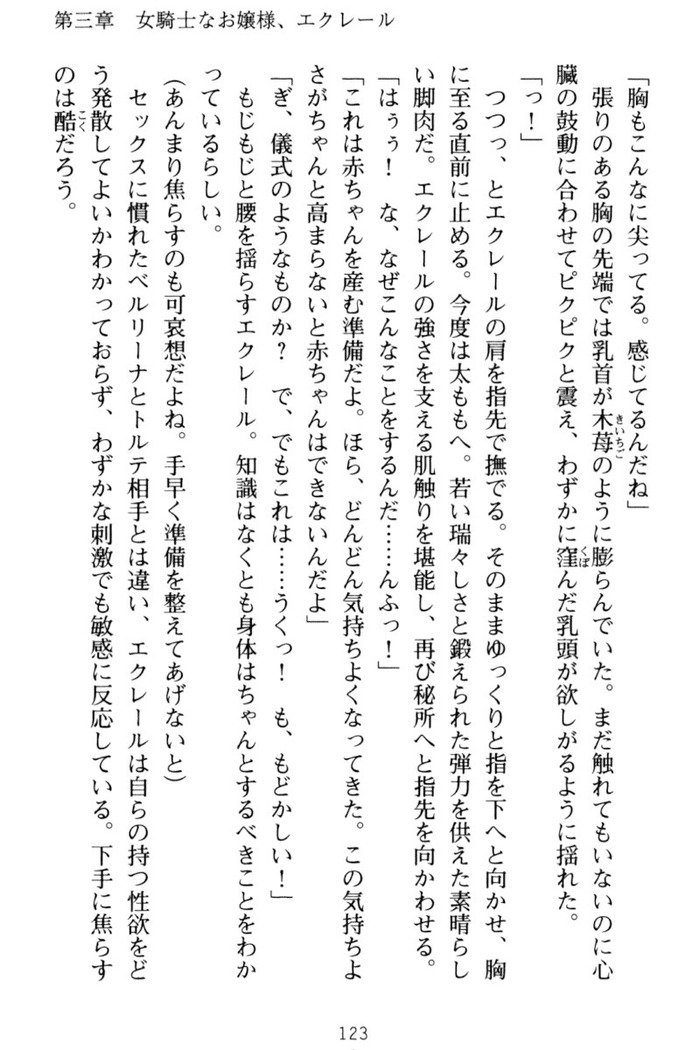 第三章　女騎士なお嬢様、エクレール
「胸もこんなに尖ってる。感じてるんだね」
張りのある胸の先端では乳首が木苺のように膨らんでいた。まだ触れてもいないのに心
きいちご
臓の鼓動に合わせてピクピクと震え、わずかに窪んだ乳頭が欲しがるように揺れた。
くぼ
「っ！」
つつっ、とエクレールの肩を指先で撫でる。そのままゆっくりと指を下へと向かせ、胸
に至る直前に止める。今度は太ももへ。若い瑞々しさと鍛えられた弾力を供えた素晴らし
い脚肉だ。エクレールの強さを支える肌触りを堪能し、再び秘所へと指先を向かわせる。
「はぅぅ！　な、なぜこんなことをするんだ……んふっ！」
「これは赤ちゃんを産む準備だよ。ほら、どんどん気持ちよくなってきた。この気持ちよ
さがちゃんと高まらないと赤ちゃんはできないんだよ」
「ぎ、儀式のようなものか？　で、でもこれは……うくっ！　も、もどかしい！」
もじもじと腰を揺らすエクレール。知識はなくとも身体はちゃんとするべきことをわか
っているらしい。
（あんまり焦らすのも可哀想だよね。手早く準備を整えてあげないと）
セックスに慣れたベルリーナとトルテ相手とは違い、エクレールは自らの持つ性欲をど
う発散してよいかわかっておらず、わずかな刺激でも敏感に反応している。下手に焦らす
のは酷だろう。
こく
123